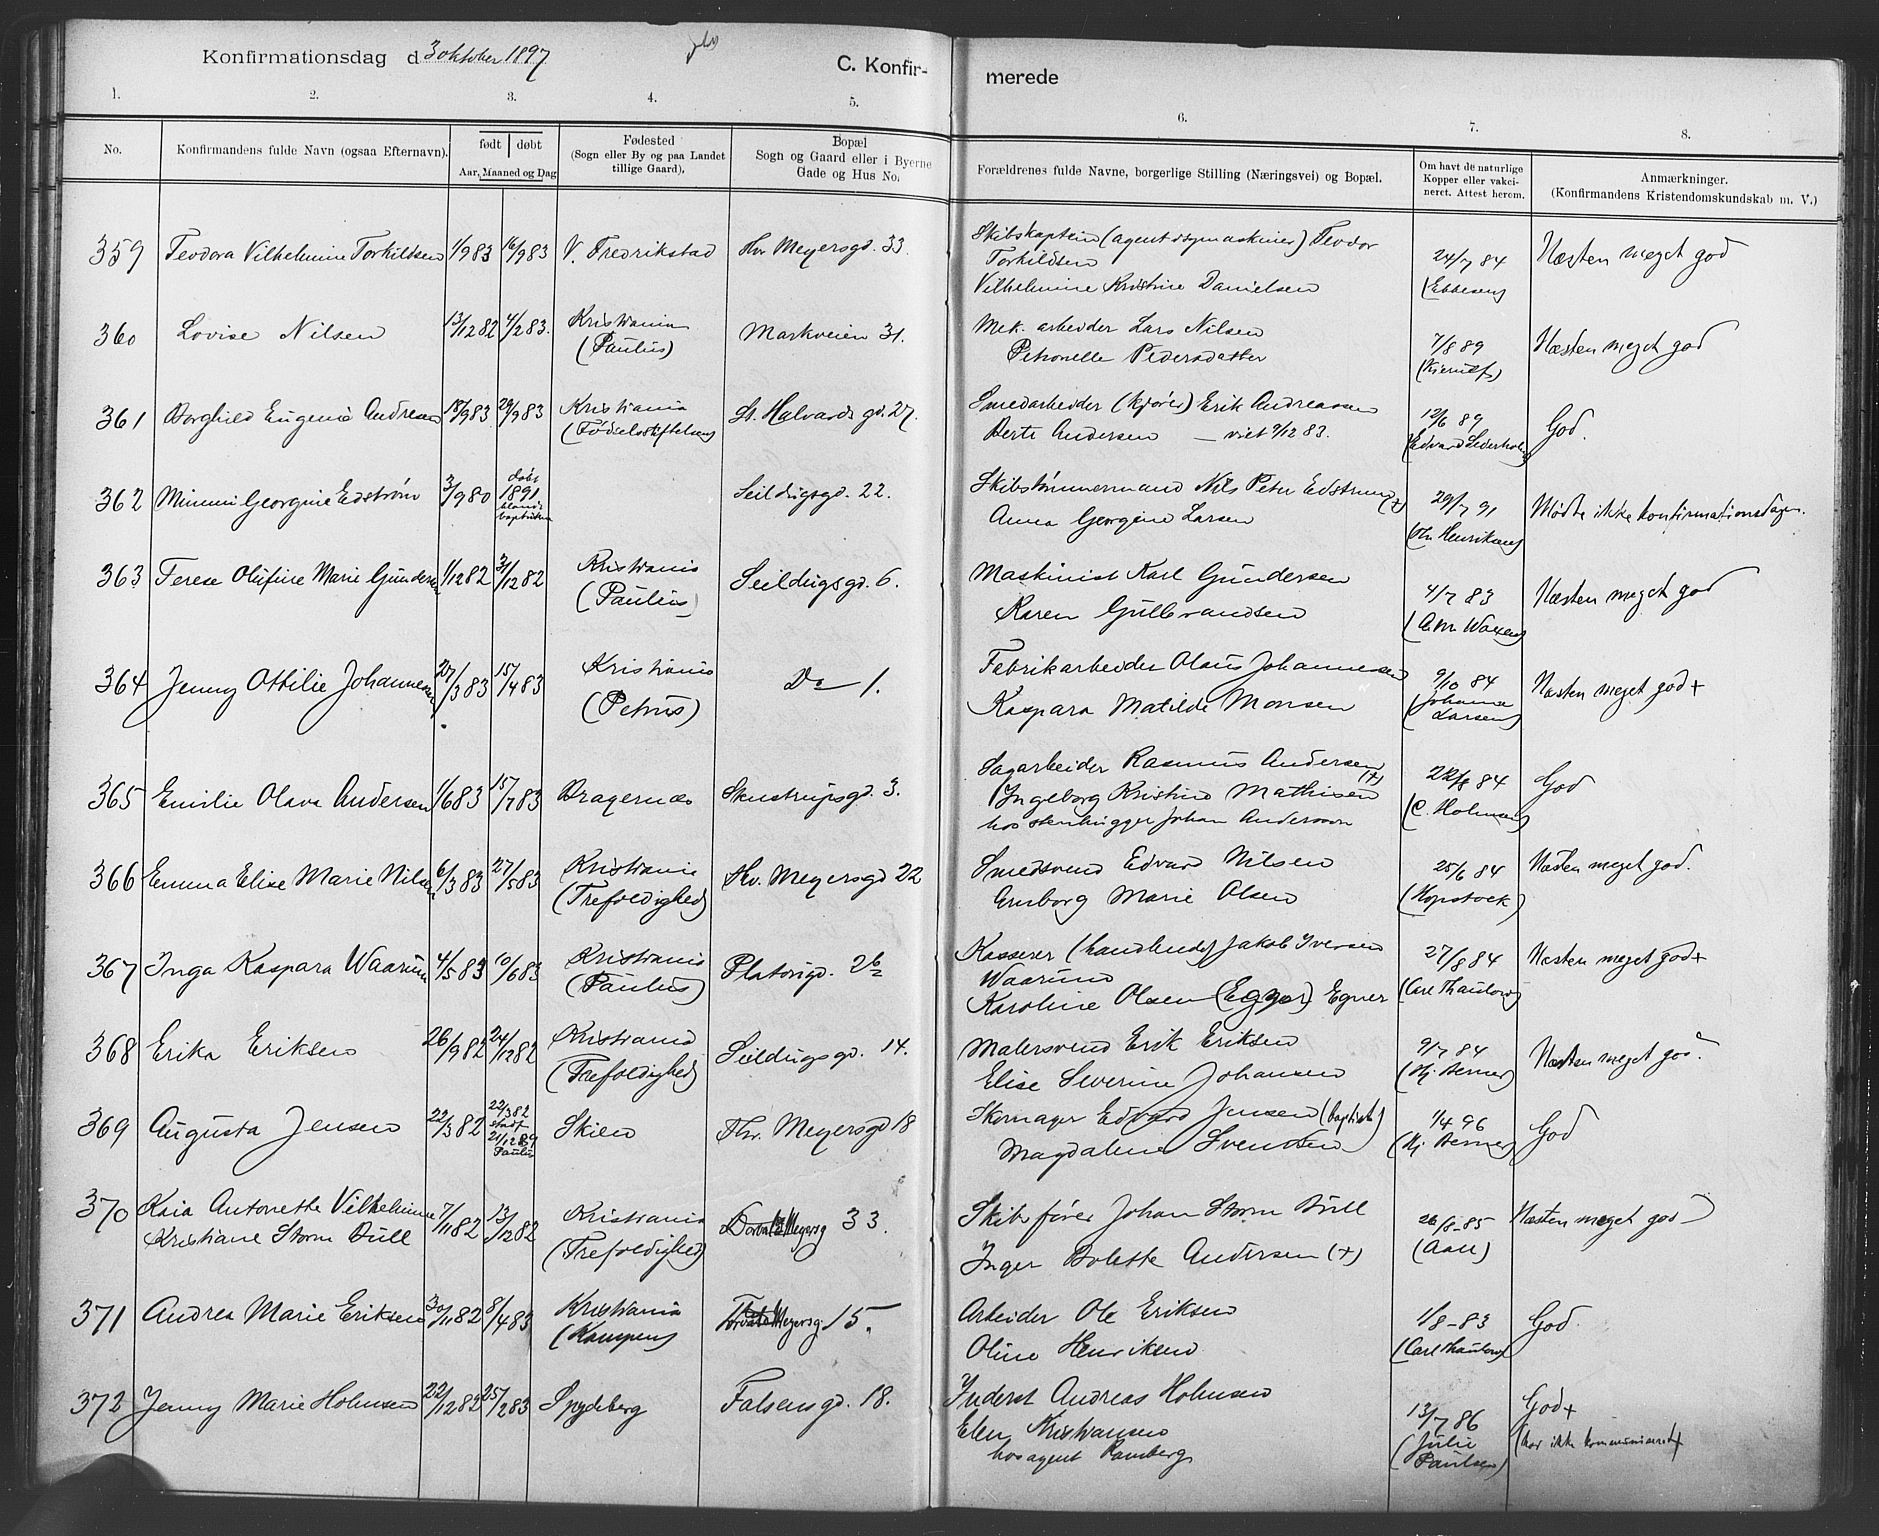 Konfirmationsdag d 3 oktober 1897
C. Konfir-
merede
1. 2. 3. 4. 5. 6. 7. 8.
No.
Konfirmandens fulde Navn (ogsaa Efternavn).
født døbt
Aar, Maaned og Dag
Fødested
(Sogn eller By og paa Landet
tillige Gaard).
Bopæl
Sogn og Gaard eller i Byerne
Gade og Hus No.
Forældrenes fulde Navne, borgerlige Stilling (Næringsvei) og Bopæl.
Om havt de naturlige
Kopper eller vakci-
neret. Attest herom.
Anmærkninger.
(Konfirmandens Kristendomskundskab m. V.)
359 Teodora Vilhelmine Torkildsen 1/9 83 16/9 83 V. Fredrikstad Thv Meyersgd. 33. Skibskaptein (agent symaskiner) Teodor
Torkildsen
Vilhelmine Kristine Danielsen
24/7 84
(Ebbesen)
Næsten meget god
360 Lovise Nilsen 13/12 82 4/2 83. Kristiania
(Paulus)
Markveien 31.
Mek. arbeider Lars Nilsen
Petronelle Pedersdatter
7/8 89
(Kierulf)
Næsten meget god
361 Borghild Eugenia Andresen 18/9 83. 29/9 83 Kristiania
(Fødselsstiftelsen)
St. Halvards gd. 27.
Smedarbeider (kjører) Erik Andreassen
Berte Andersen — viet 9/12 83.
12/6 89
(Edvard Cederholm)
God.
362 Minni Georgine Edstrøm 3/9 80 døbt
1891
blandt
baptister
Seildugsgd. 22.
Skibstømmermand Nils Peter Edstrøm (+)
Anna Georgine Larsen
29/7 91
(Chr Henriksen)
Mødte ikke konfirmationsdagen.
363 Terese Olufine Marie Gundersen 1/12 82 31/12 82 Kristiania
(Paulus)
Seildugsgd. 6.
Maskinist Karl Gundersen
Karen Gulbrandsen
4/7 83
Næsten meget god
364 Jenny Ottilie Johannesen 27/3 83 15/4 83 Kristiania
(Petrus)
Do 1.
Fabrikarbeider Olaus Johannesen
Kaspara Matilde Monsen
9/10 84
(Johanna
Larsen)
Næsten meget god +
365 Emilie Olava Andersen 1/6 83 15/7 83 Bragernæs Skustrupsgd. 3.
Sagarbeider Rasmus Andersen
(+)
Ingeborg Kristine Mathisen
hos stenhugger Johan Andersson
22/8 84
(C. Holmsen)
God
366 Emma Elise Marie Nilsen 6/3 83 27/5 83 Kristiania
(Trefoldighed)
Thv. Meyersgd 22
Smedsvend Edvard Nilsen
Gunborg Marie Olsen
25/6 84
(Kopstock)
Næsten meget god.
367 Inga Kaspara Waarum 4/5 83 10/6 83 Kristiania
(Paulus)
Platougd. 2b
Kasserer (handlende) Jakob Iversen
Waarund
Karoline Olsen (Egger) Egner
27/8 84
(Carl Thaulow)
Næsten meget god +
368 Erika Eriksen 26/9 82 24/12 82 Kristiania
(Trefoldighed)
Seildugsgd. 14.
Malersvend Erik Eriksen
Elise Severine Johansen
9/7 84
Næsten meget god.
369 Augusta Jensen 22/3 82 22/3 82
stadf
21/12 89
Paulus
Skien Thv. Meyersgd 18
Skomager Edvard Jensen (baptist)
Magdalene Svendsen
1/4 96
God
370 Kaia Antonette Vilhelmine
Kristiane Storm Bull
7/11 82 13/12 82 Kristiania
(Trefoldighed)
Meyersg 33.
Skibsfører Johan Storm Bull
Inger Bolette Andersen (+)
26/8-85
(Aall)
Næsten meget god
371 Andrea Marie Eriksen 30/11 82 8/4 83 Kristiania
(Kampen)
Meyersg. 15.
Arbeider Ole Eriksen
Oline Henriksen
1/8-83
(Carl Thaulow)
God.
372 Jenny Marie Holmsen 22/12 82 25/2 83 Spydeberg Falsensgd. 18.
Inderst Andreas Holmsen
Elen Kristiansen
hos agent Ramberg
13/7 86
(Julie
Paulsen)
God +
(har ikke kommuniceret)